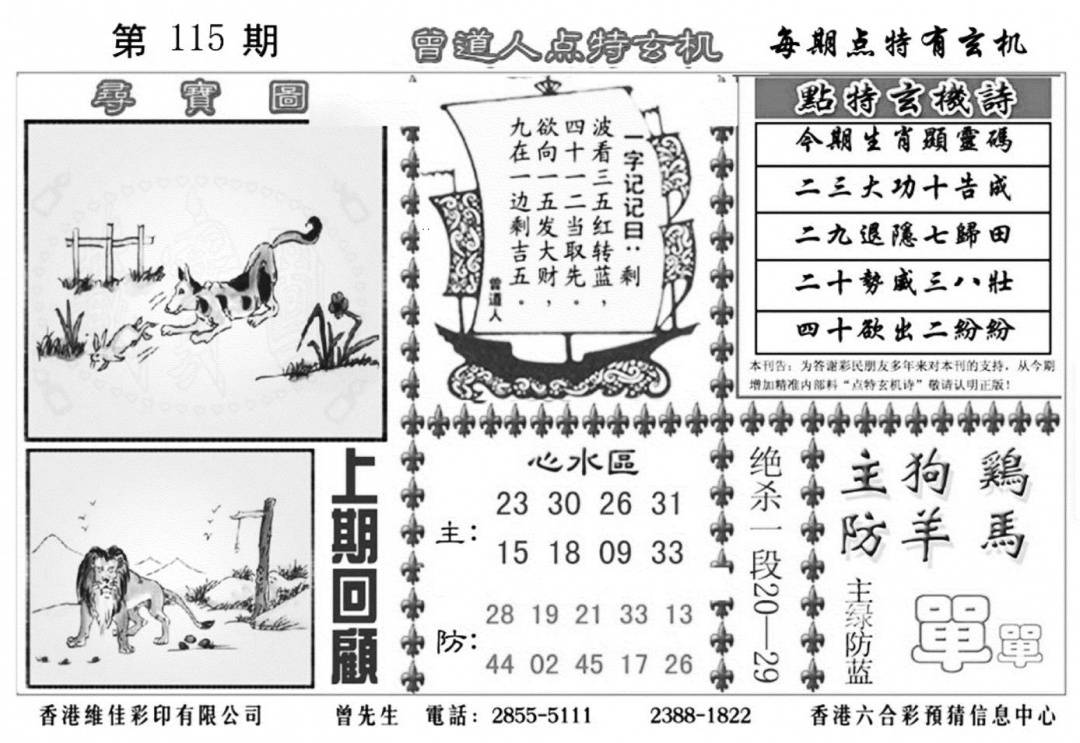 第 115 期
曾道人点特玄机
每期点特有玄机
尋寶圖
一字记记曰：剩
波看三五红转蓝，
四十一二当取先。
欲向一五发大财，
九在一边剩吉五。
曾道人
點特玄機詩
今期生肖顯靈碼
二三大功十告成
二九退隱七歸田
二十勢威三八壯
四十欲出二紛紛
本刊告：为答谢彩民朋友多年来对本刊的支持，从今期
增加精准内部料“点特玄机诗”敬请认明正版！
上期回顧
心水區
主：
23 30 26 31
15 18 09 33
防：
28 19 21 33 13
44 02 45 17 26
绝杀一段20—29
主狗鷄
防羊馬
主绿防蓝
單單
香港维佳彩印有限公司
曾先生
電話：2855-5111
2388-1822
香港六合彩预猜信息中心